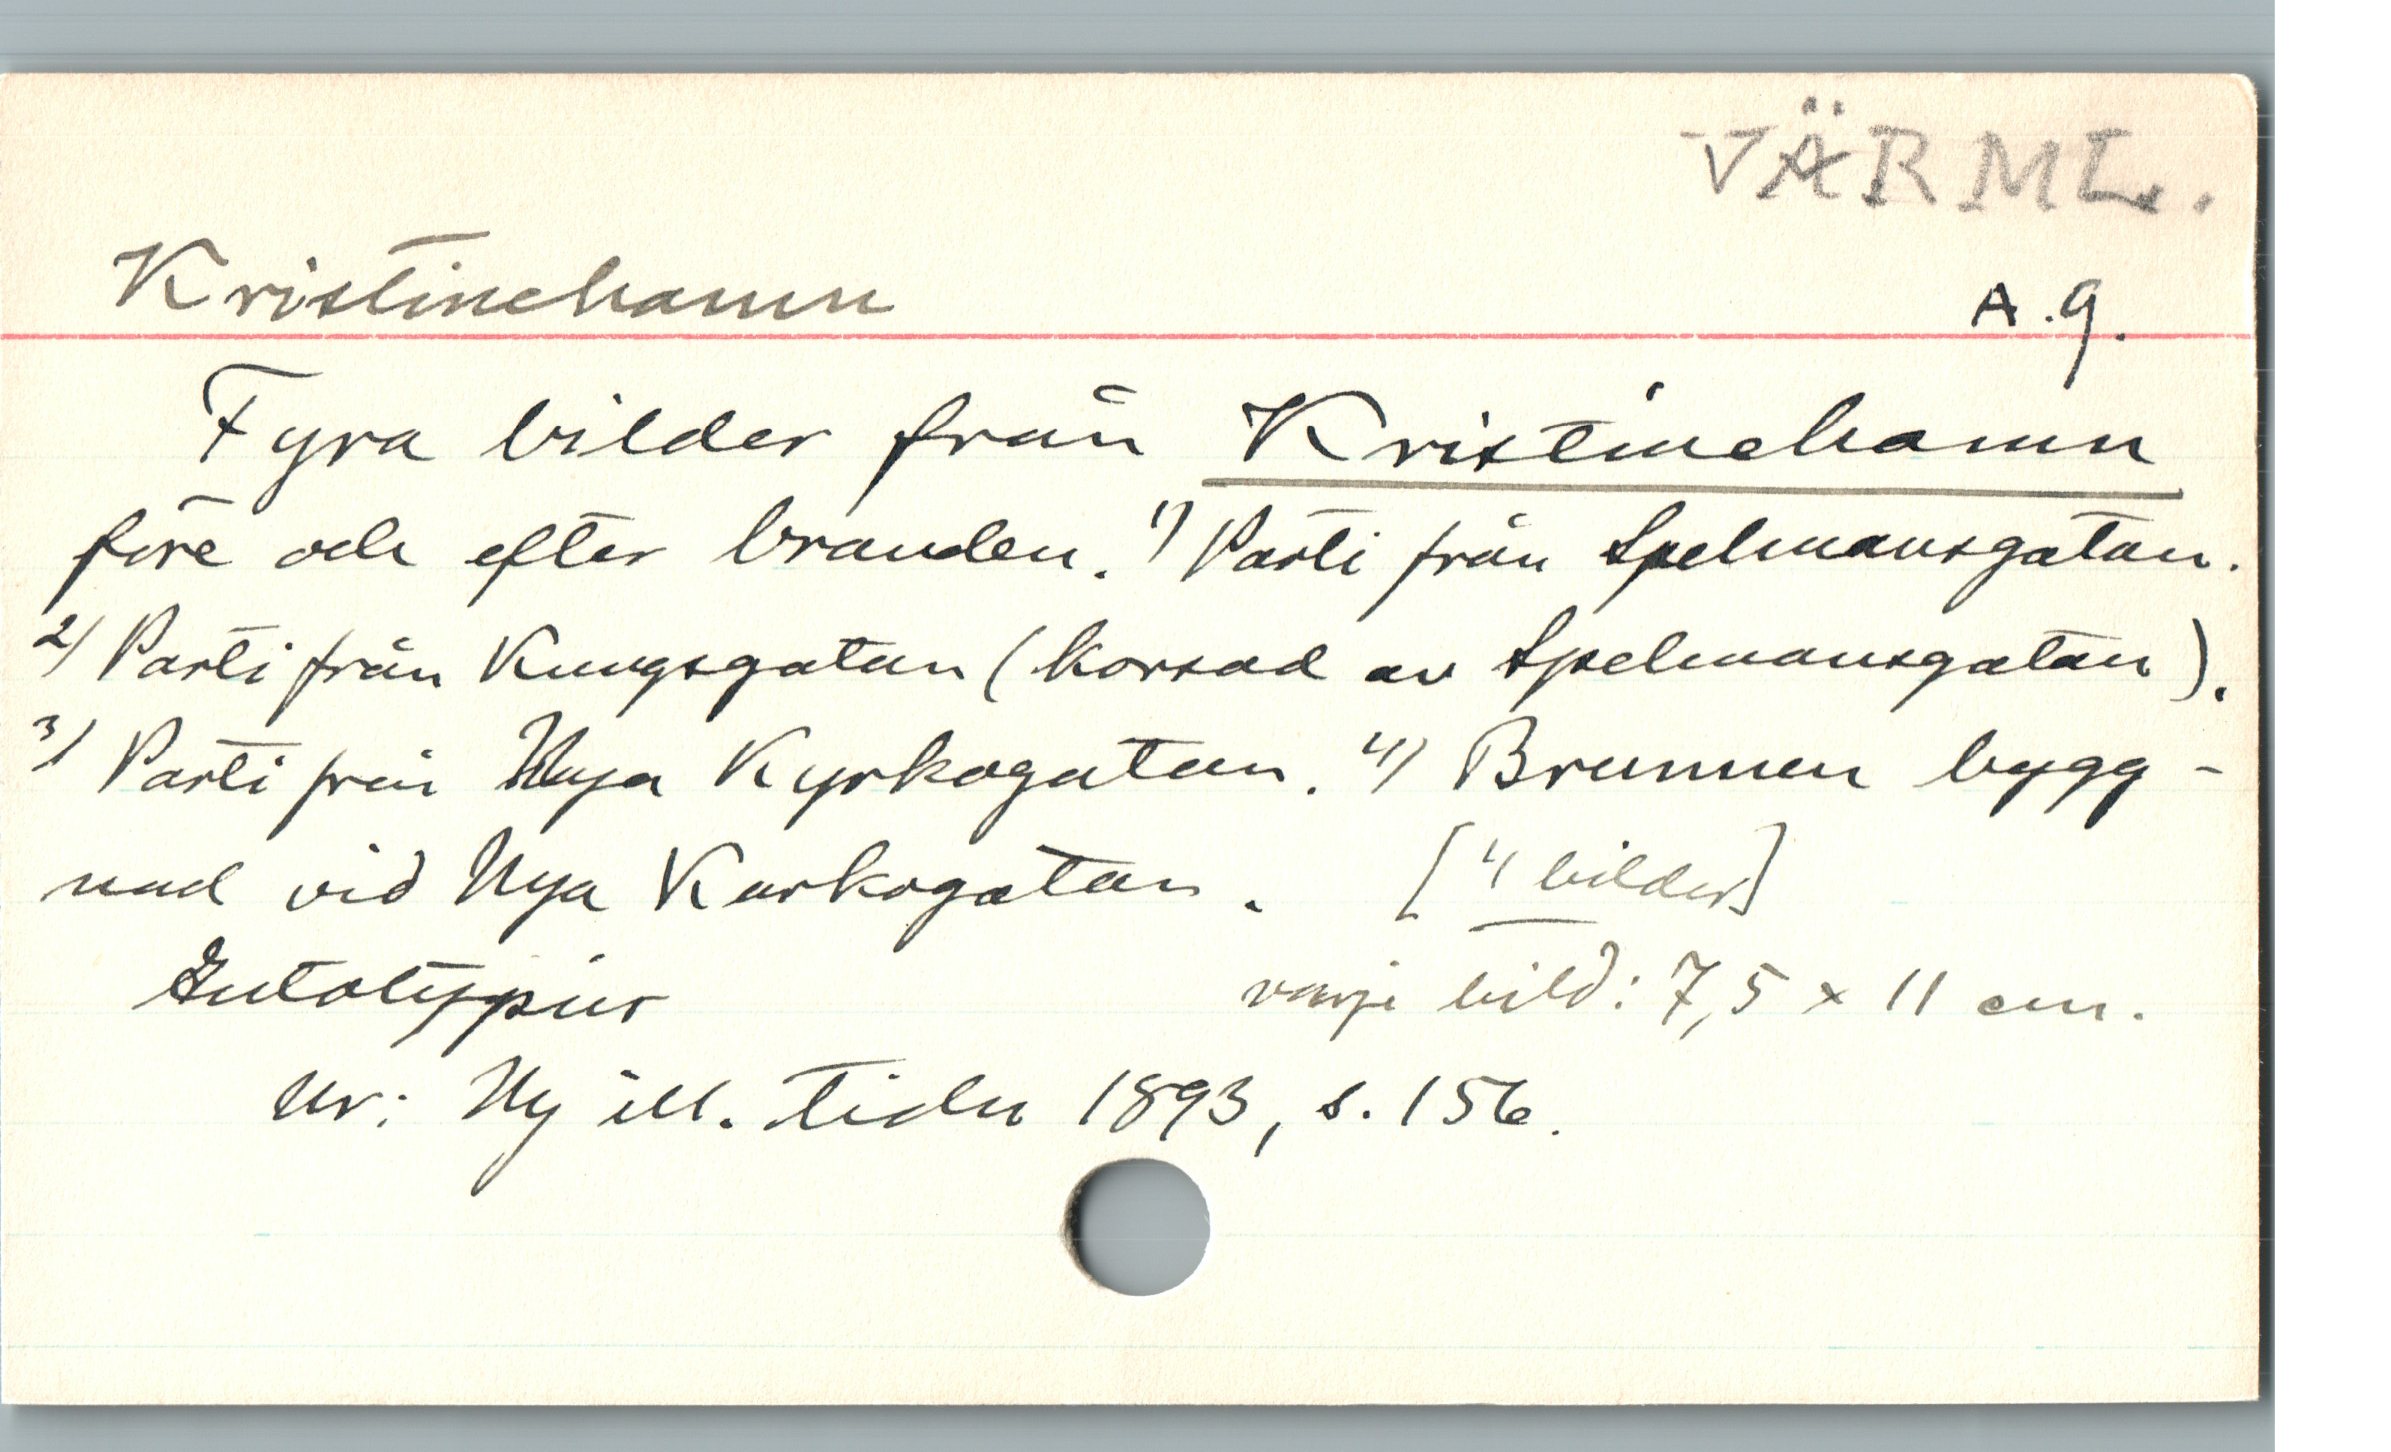 VÄRML.
Kristinehamn
A.9.
Fyra bilder från Kristinehamn
före och efter branden. 1) Parti från Spelmansgatan.
2) Parti från Kungsgatan (korsad av Spelmansgatan).
3) Parti från Nya Kyrkogatan. 4) Brunnen bygg-
nad vid Nya Karkogatan. [4 bilder]
Autotypier
varje bild: 7,5 x 11 cm.
Ur: Ny ill. tidn 1893, s. 156.